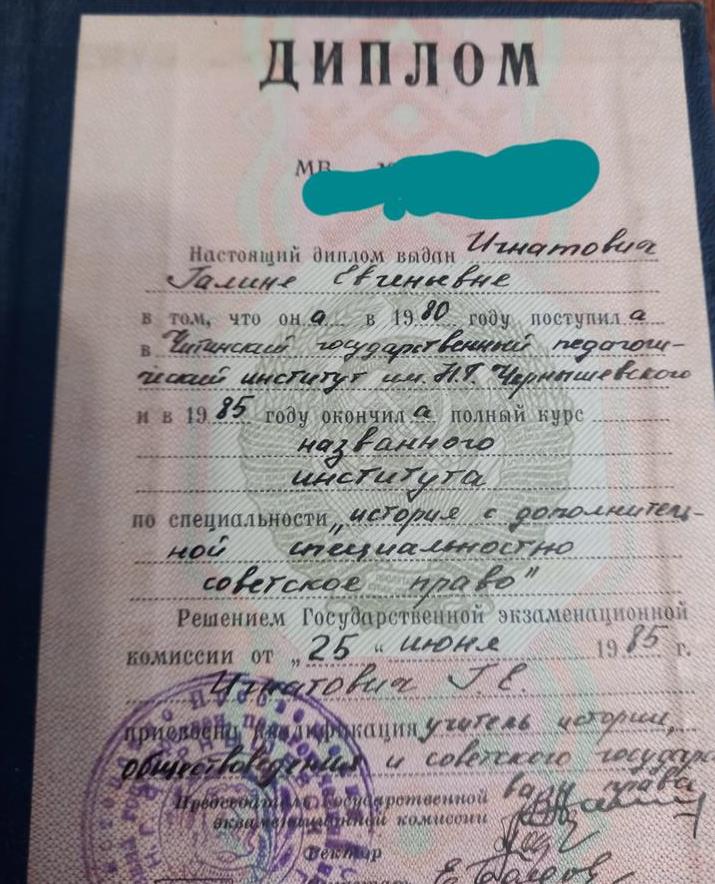 ДИПЛОМ
МВ
Настоящий диплом выдан Игнатович
Галине Евгеньевне
в том, что он а в 19 80 году поступил а
в Читинский государственный педагоги-
ческий институт им. Н.Г. Чернышевского
и в 19 85 году окончил а полный курс
названного
института
по специальности „история с дополнитель-
ной специальностью
советское право"
Решением Государственной экзаменационной
комиссии от „ 25 " июня 19 85 г.
Игнатович Г. Е.
присвоена квалификация учитель истории,
обществоведения и советского государст
венного права
Председатель Государственной
экзаменационной комиссии
Ректор